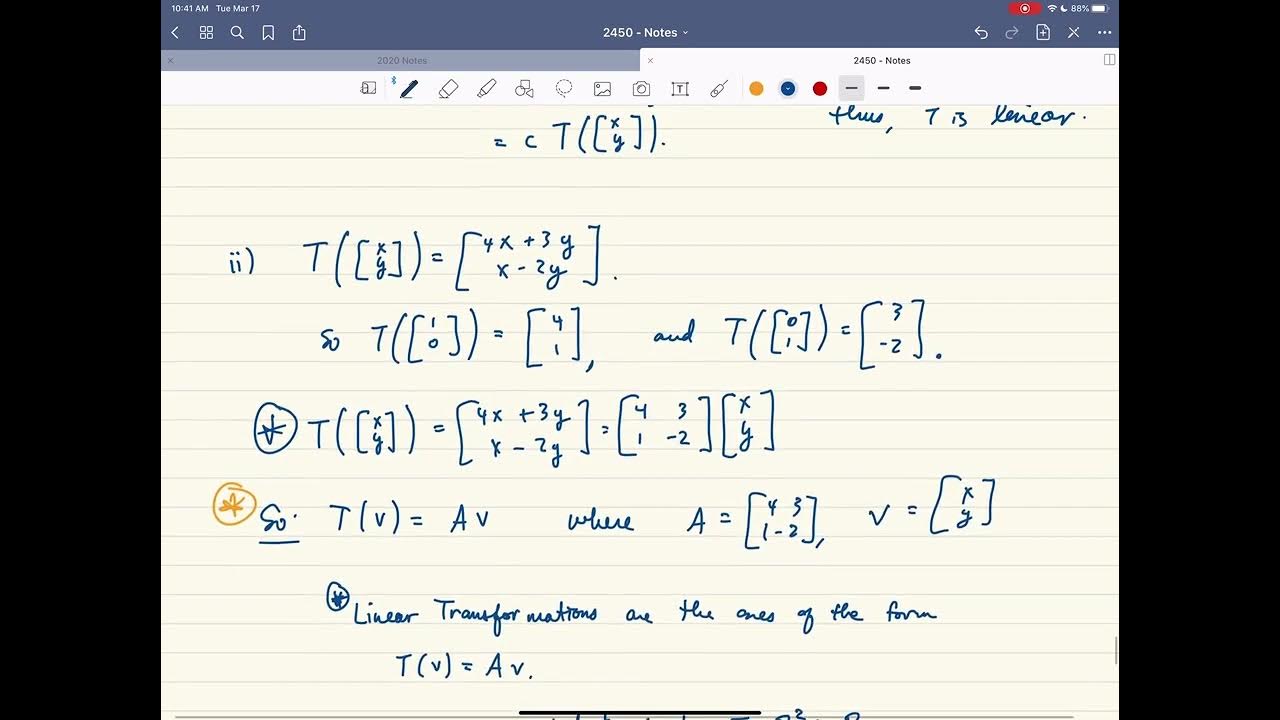 10:41 AM Tue Mar 17
88%
2450 - Notes
2020 Notes
2450 - Notes
thus, T is linear.
= c T([x y]).
ii) T([x y]) = [4x + 3y x - 2y].
So T([1 0]) = [4 1], and T([0 1]) = [3 -2].
* T([x y]) = [4x + 3y x - 2y] = [4 3 1 -2][x y]
* So: T(v) = Av where A = [4 3 1 -2], v = [x y]
* Linear Transformations are the ones of the form
T(v) = Av.